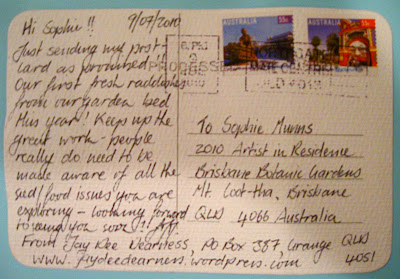 Hi Sophie!! 9/07/2010
Just sending my post-
card as promised
Our first fresh raddishes
from our garden bed
this year! Keep up the
great work - people
really do need to be
made aware of all the
seed/food issues you are
exploring - looking forward
to seeing you over!!
From Jay Kee Dearness, PO Box 357 Grange QLD
4051
www.jaydeedearness.wordpress.com
To Sophie Munns
2010 Artist in Residence
Brisbane Botanic Gardens
Mt. Coot-tha, Brisbane
QLD 4066 Australia
AUSTRALIA 55c
AUSTRALIA 55c
6 PM
2010